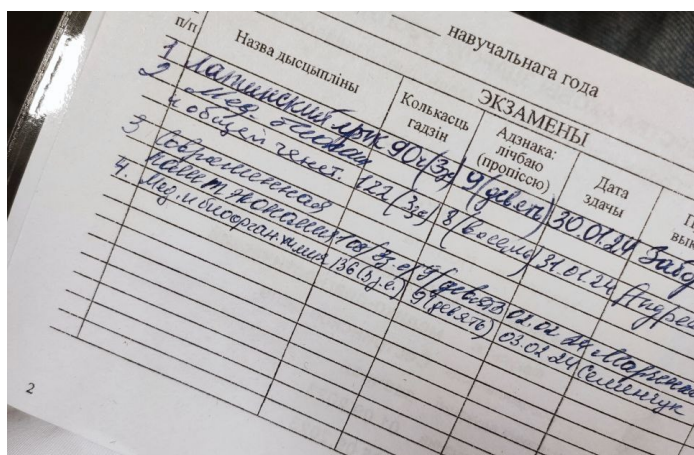 навучальнага года
ЭКЗАМЕНЫ
п/п
Назва дысцыпліны
Колькасць гадзін
Адзнака: лічбаю (пропіссю)
Дата здачы
1 Латинский язык 90ч (3з.е) 9 (девять) 30.01.24
2 Мед. биология
и общей генет. 122 (3з.е) 8 (восемь) 31.01.24
3 Современная
полит. экономия 9 (девять) 02.02.24
4. Мед. и биоорган. химия 136 (3 з.е.) 9 (девять) 03.02.24 Семенчук
2